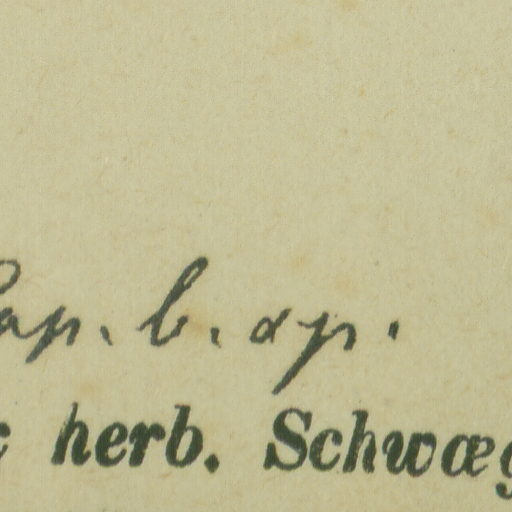 Cap. b. sp.
herb. Schwæg